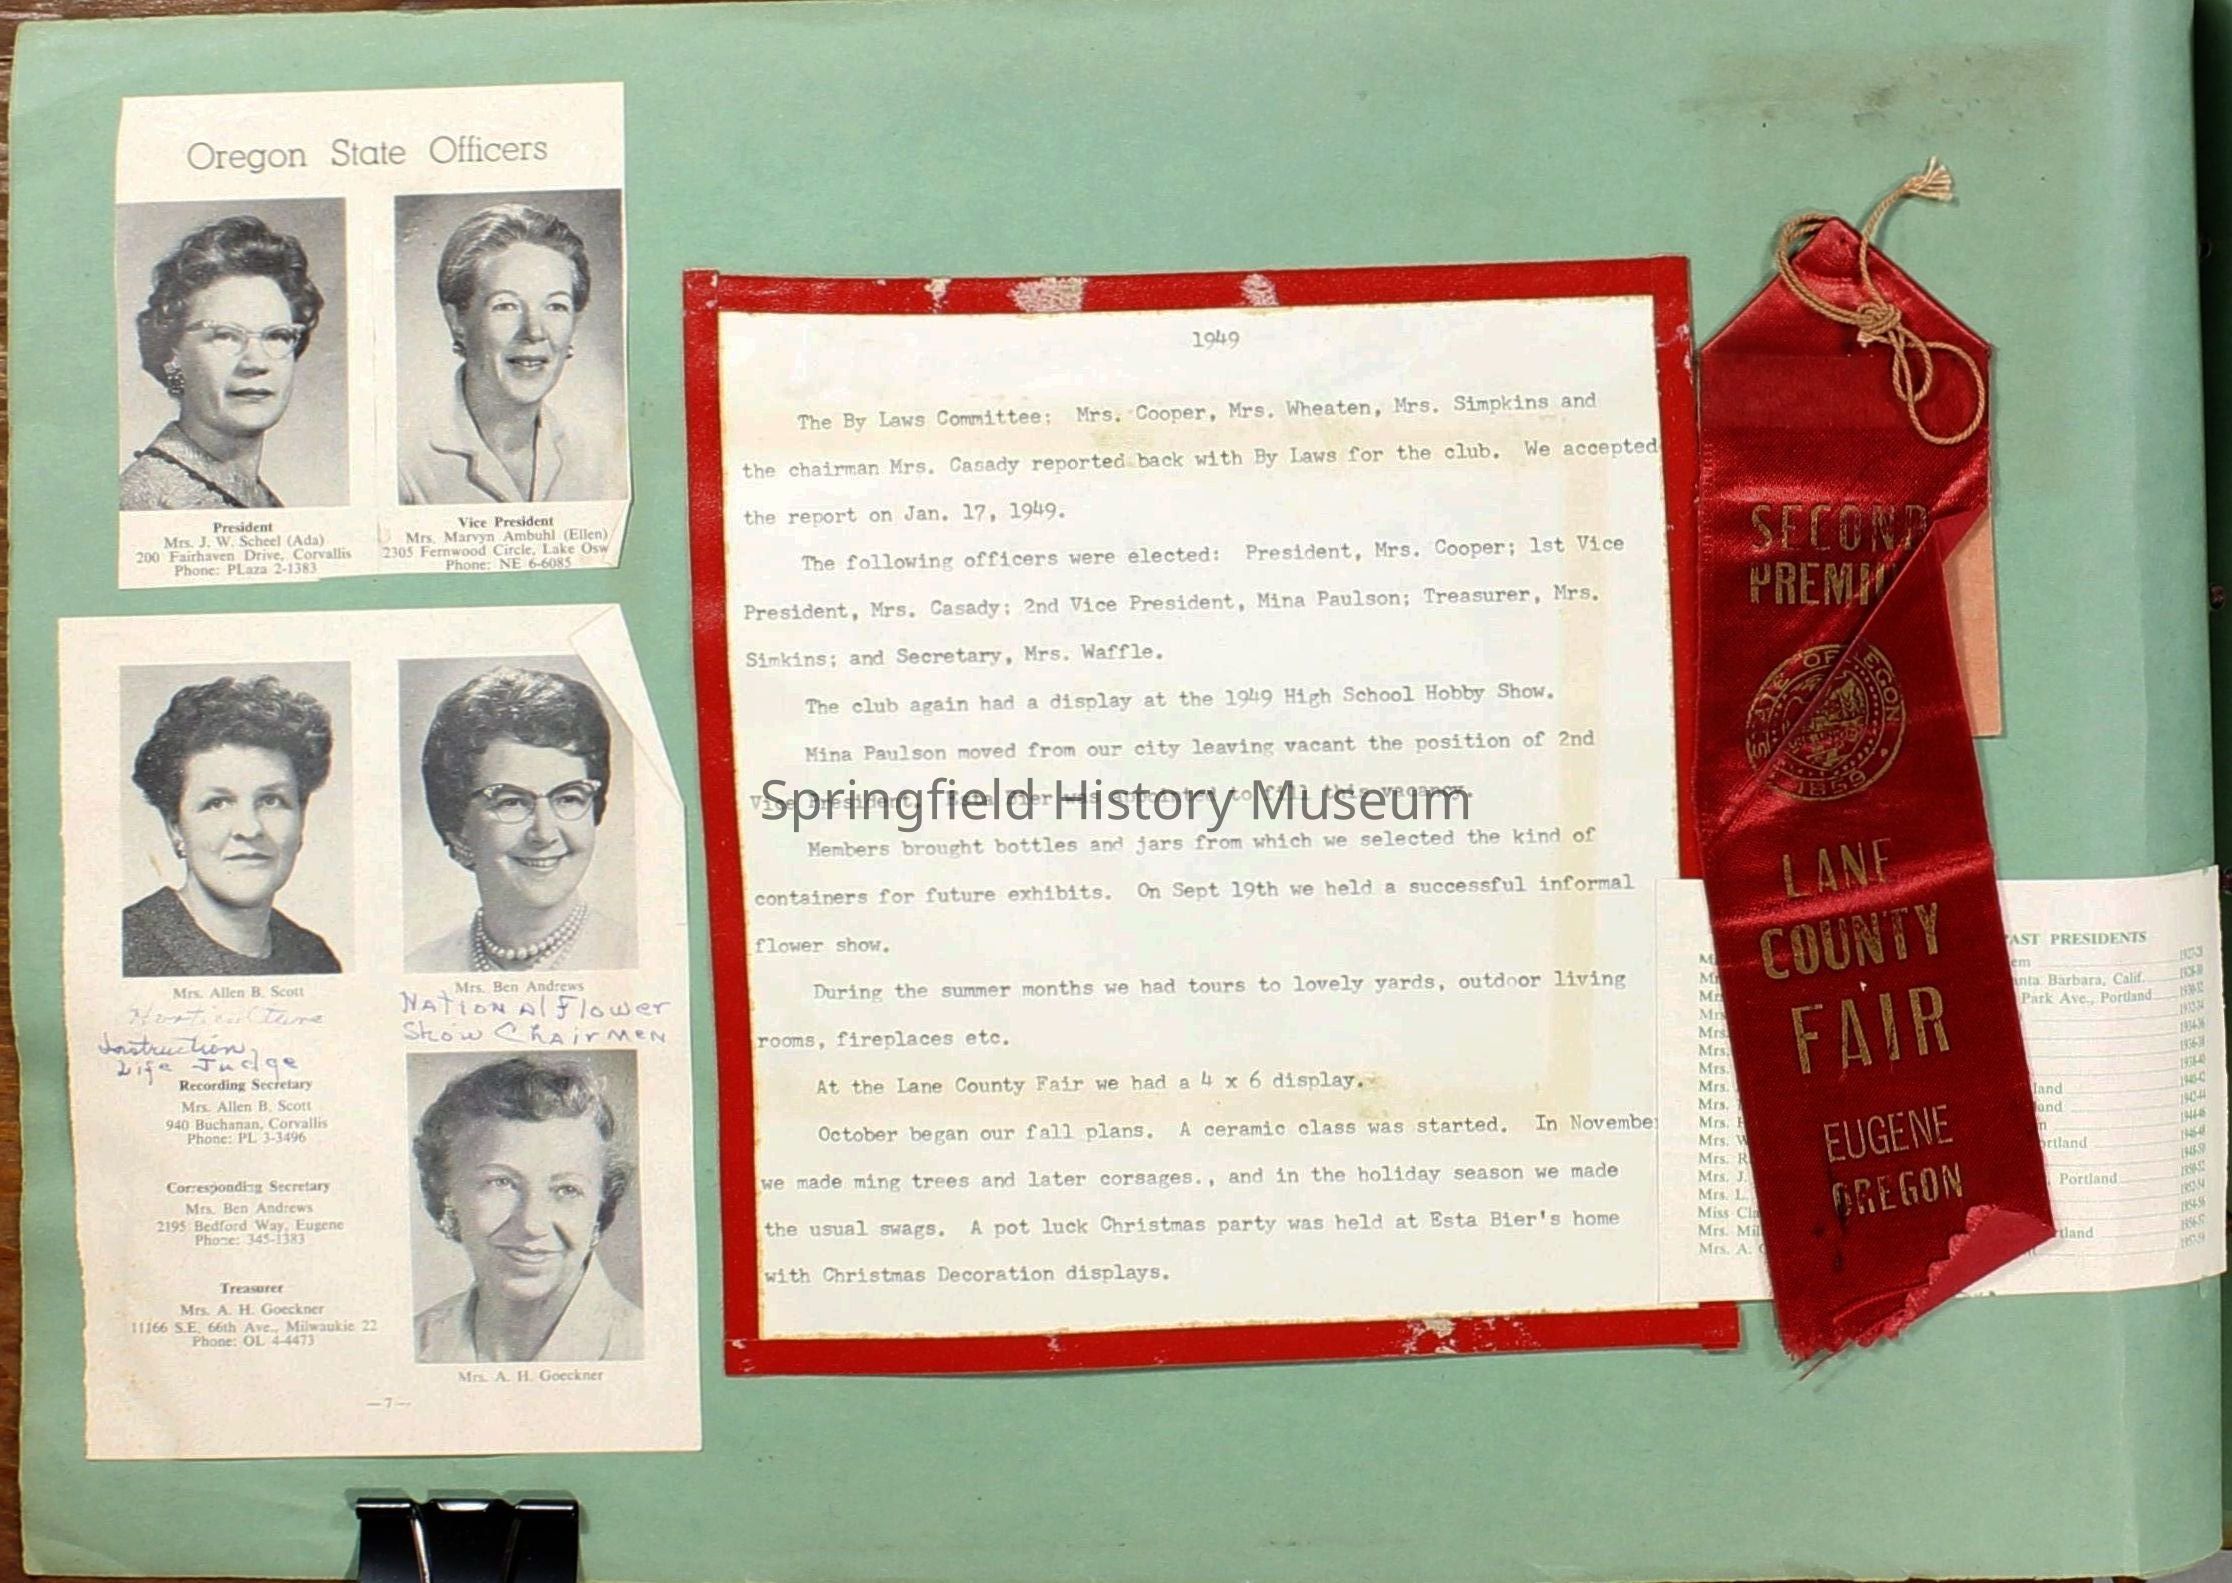 Oregon State Officers
President
Mrs. J. W. Scheel (Ada)
200 Fairhaven Drive, Corvallis
Phone: PLaza 2-1383
Vice President
Mrs. Marvyn Ambuhl (Ellen)
2305 Fernwood Circle, Lake Osw
Phone: NE 6-6085
Mrs. Allen B. Scott
Horticulture
Instruction
Life Judge
Mrs. Ben Andrews
National Flower
Show Chairmen
Recording Secretary
Mrs. Allen B. Scott
940 Buchanan, Corvallis
Phone: PL 3-3496
Corresponding Secretary
Mrs. Ben Andrews
2195 Bedford Way, Eugene
Phone: 345-1383
Treasurer
Mrs. A. H. Goeckner
11166 S.E. 66th Ave., Milwaukie 22
Phone: OL 4-4473
Mrs. A. H. Goeckner
—7—
1949
The By Laws Committee; Mrs. Cooper, Mrs. Wheaten, Mrs. Simpkins and
the chairman Mrs. Casady reported back with By Laws for the club. We accepted
the report on Jan. 17, 1949.
The following officers were elected: President, Mrs. Cooper; 1st Vice
President, Mrs. Casady; 2nd Vice President, Mina Paulson; Treasurer, Mrs.
Simkins; and Secretary, Mrs. Waffle.
The club again had a display at the 1949 High School Hobby Show.
Mina Paulson moved from our city leaving vacant the position of 2nd
Vice President. Esta Bier was appointed to fill this vacancy.
Springfield History Museum
Members brought bottles and jars from which we selected the kind of
containers for future exhibits. On Sept 19th we held a successful informal
flower show.
During the summer months we had tours to lovely yards, outdoor living
rooms, fireplaces etc.
At the Lane County Fair we had a 4 x 6 display.
October began our fall plans. A ceramic class was started. In November
we made ming trees and later corsages., and in the holiday season we made
the usual swags. A pot luck Christmas party was held at Esta Bier's home
with Christmas Decoration displays.
SECOND
PREMI
STATE OF OREGON
1859
LANE
COUNTY
FAIR
EUGENE
OREGON
AST PRESIDENTS
em 1927-28
anta Barbara, Calif. 1928-30
Park Ave., Portland 1930-32
Mrs 1932-34
Mrs. 1934-36
Mrs. 1936-38
Mrs. 1938-40
Mrs. land 1940-42
Mrs. and 1942-44
Mrs. 1944-46
Mrs. W rtland 1946-48
Mrs. R 1948-50
Mrs. J. , Portland 1950-52
Mrs. L. 1952-54
Miss Cla 1954-56
Mrs. Mil rtland 1956-57
Mrs. A. 1957-59